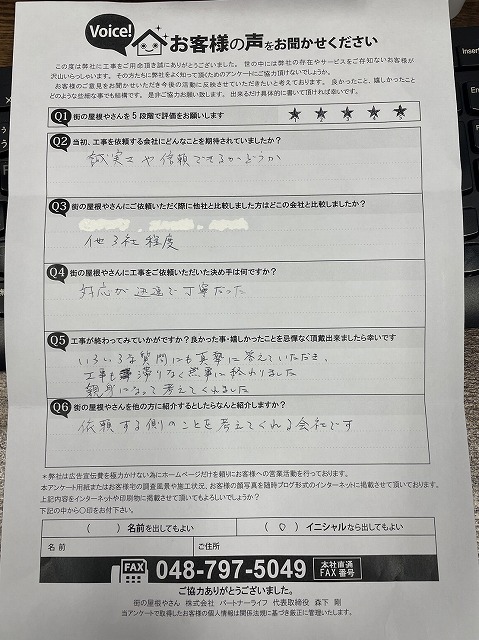 Voice!
お客様の声をお聞かせください
この度は弊社に工事をご用命頂き誠にありがとうございました。世の中には弊社の存在やサービスをご存知ないお客様が
沢山いらっしゃいます。その方たちに弊社をよく知って頂くためのアンケートにご協力頂けないでしょうか。
お客様のご意見をお聞かせいただき今後の活動に反映させていただきたいと考えております。良かったこと、嬉しかったこと
どのような些細な事でも結構です。是非ご協力お願い致します。出来るだけ具体的に書いて頂ければ幸いです。
Q1 街の屋根やさんを5段階で評価をお願いします ★ ★ ★ ★ ★
1 2 3 4 5
Q2 当初、工事を依頼する会社にどんなことを期待されていましたか?
誠実さや信頼できるかどうか
Q3 街の屋根やさんにご依頼いただく際に他社と比較しました方はどこの会社と比較しましたか?
他3社程度
Q4 街の屋根やさんに工事をご依頼いただいた決め手は何ですか?
対応が迅速で丁寧だった
Q5 工事が終わってみていかがですか?良かった事・嬉しかったことを忌憚なく頂戴出来ましたら幸いです
いろいろな質問にも真摯に答えていただき、
工事も滞りなく無事に終わりました
親身になって考えてくれました
Q6 街の屋根やさんを他の方に紹介するとしたらなんと紹介しますか?
依頼する側のことを考えてくれる会社です
*弊社は広告宣伝費を極力かけない為にホームページだけを頼りにお客様への営業活動を行っております。
本アンケート用紙またはお客様宅の調査風景や施工状況、お客様の顔写真を随時ブログ形式のインターネットに掲載させて頂いております。
上記内容をインターネットや印刷物に掲載させて頂いてもよろしいでしょうか?
下記の中から〇印をお付下さい。
( ) 名前を出してもよい ( ○ ) イニシャルなら出してもよい
名前 ご住所
FAX 048-797-5049 本社直通 FAX番号
ご協力ありがとうございました。
街の屋根やさん 株式会社 パートナーライフ 代表取締役 森下 剛
当アンケートで取得したお客様の個人情報は関係法規に基づき厳正に管理いたします。
Insert